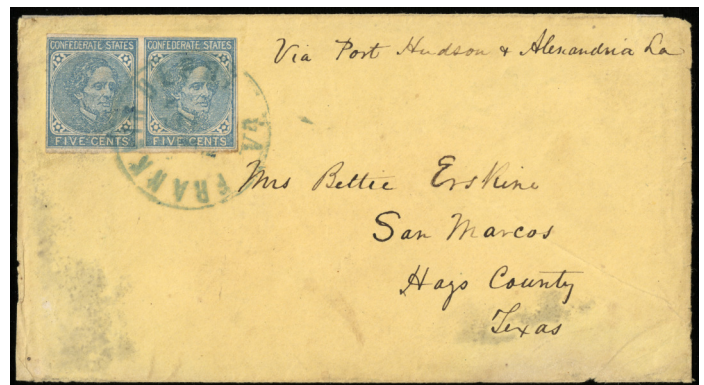 CONFEDERATE STATES CONFEDERATE STATES
FIVE CENTS FIVE CENTS
Via Port Hudson & Alexandria La
VA
Mrs Bettie Erskine
San Marcos
Hays County
Texas